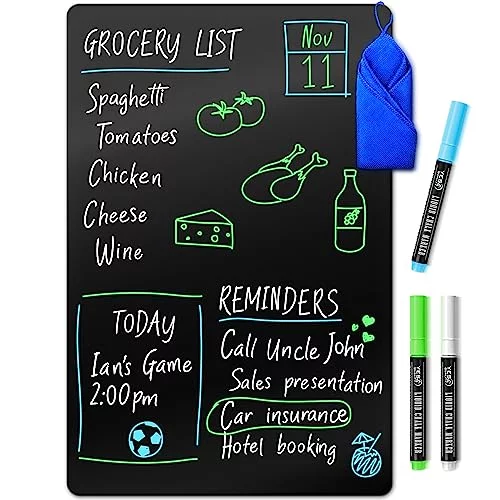 GROCERY LIST
Nov
11
Spaghetti
Tomatoes
Chicken
Cheese
Wine
TODAY
Ian's Game
2:00pm
REMINDERS
Call Uncle John
Sales presentation
Car insurance
Hotel booking
LIQUID CHALK MARKER
LIQUID CHALK MARKER
LIQUID CHALK MARKER